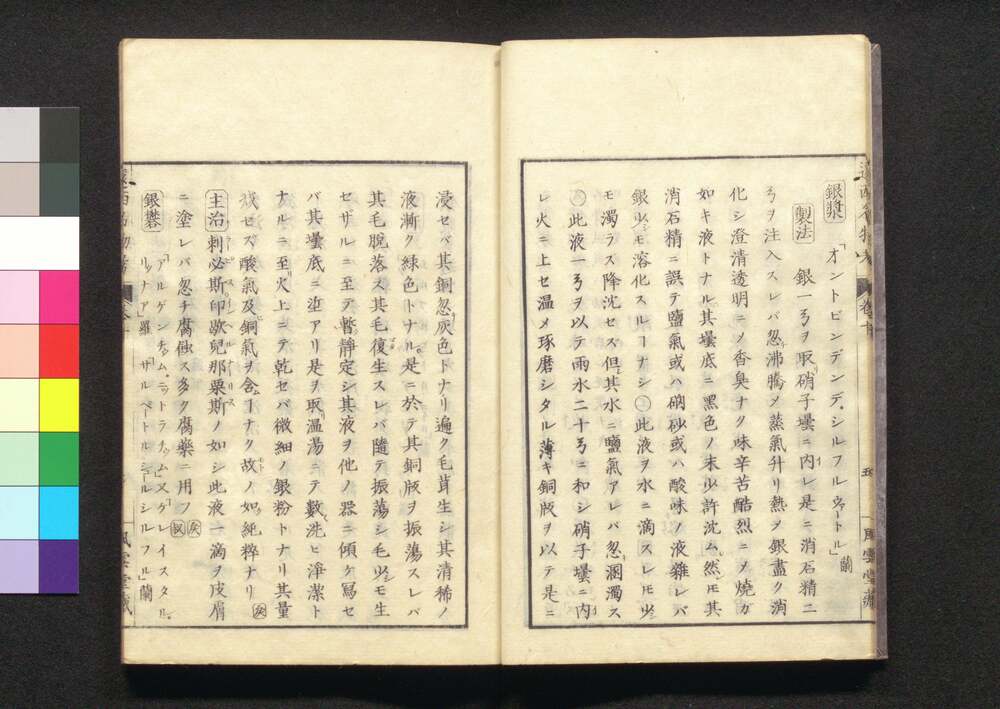 銀漿 「オントビンデンデ、シルフルウートル」蘭
製法 銀一ヲ取硝子壜ニ内レ是ニ消石精二
ヲ注入スレバ忽沸騰メ蒸氣升リ熱ヲ銀盡ク消
化シ澄清透明ニメ香臭ナク味辛苦酷烈ニメ燒ガ
如キ液トナル其壜底ニ黑色ノ末少許沈ム然モ其
消石精ニ誤テ鹽氣或ハ硇砂或ハ酸味ノ液雜レバ
銀少モ溶化スルヿナシ㊀此液ヲ水ニ滴スレモ少
モ濁ラス降沈セス但其水ニ鹽氣アレバ忽溷濁ス
此液一ヲ以テ雨水二十ニ和シ硝子壜ニ内
レ火ニ上セ温メ琢磨シタル薄キ銅版ヲ以テ是ニ
五
風雲堂藏
浸セバ其銅忽灰色トナリ遍ク毛茸生シ其清稀ノ
液漸ク綠色トナル是ニ於テ其銅版ヲ振蕩スレバ
其毛脫落ス其毛復生スレバ隨テ振蕩シ毛少モ生
セザルニ至テ暫静定シ其液ヲ他ノ器ニ傾ケ寫セ
バ其壜底ニ垽アリ是ヲ取温湯ニテ數洗ヒ淨潔ト
ナルニ至火上ニテ乾セバ微細ノ銀粉トナリ其量
減セズ酸氣及銅氣ヲ含ムヿナク故ノ如純粹ナリ
主治 刺必斯印歇兒那栗斯ノ如シ此液一滴ヲ皮膚
ニ塗レバ忽チ腐蝕ス多ク腐藥ニ用フ
銀礬 「アルゲンチュム、ニットラチュム」又「ケレイスタル、
リュナア」羅 「サルペートルシュールシルフル」蘭
風雲堂藏